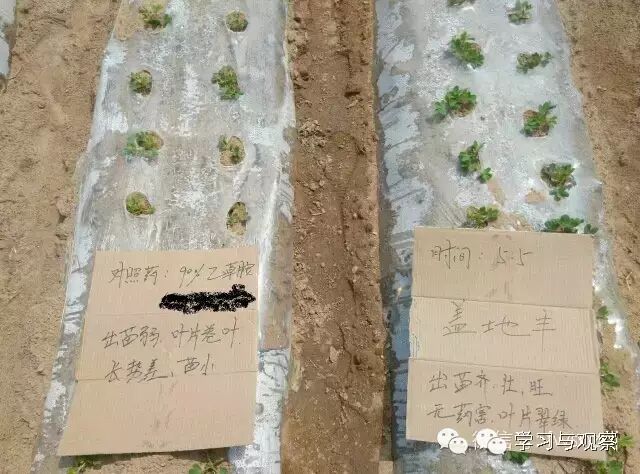 对照药：90%乙草胺
出苗弱，叶片卷叶
长势差，苗小
时间：5.5
盖地丰
出苗齐，壮，旺，
无药害，叶片翠绿
学习与观察